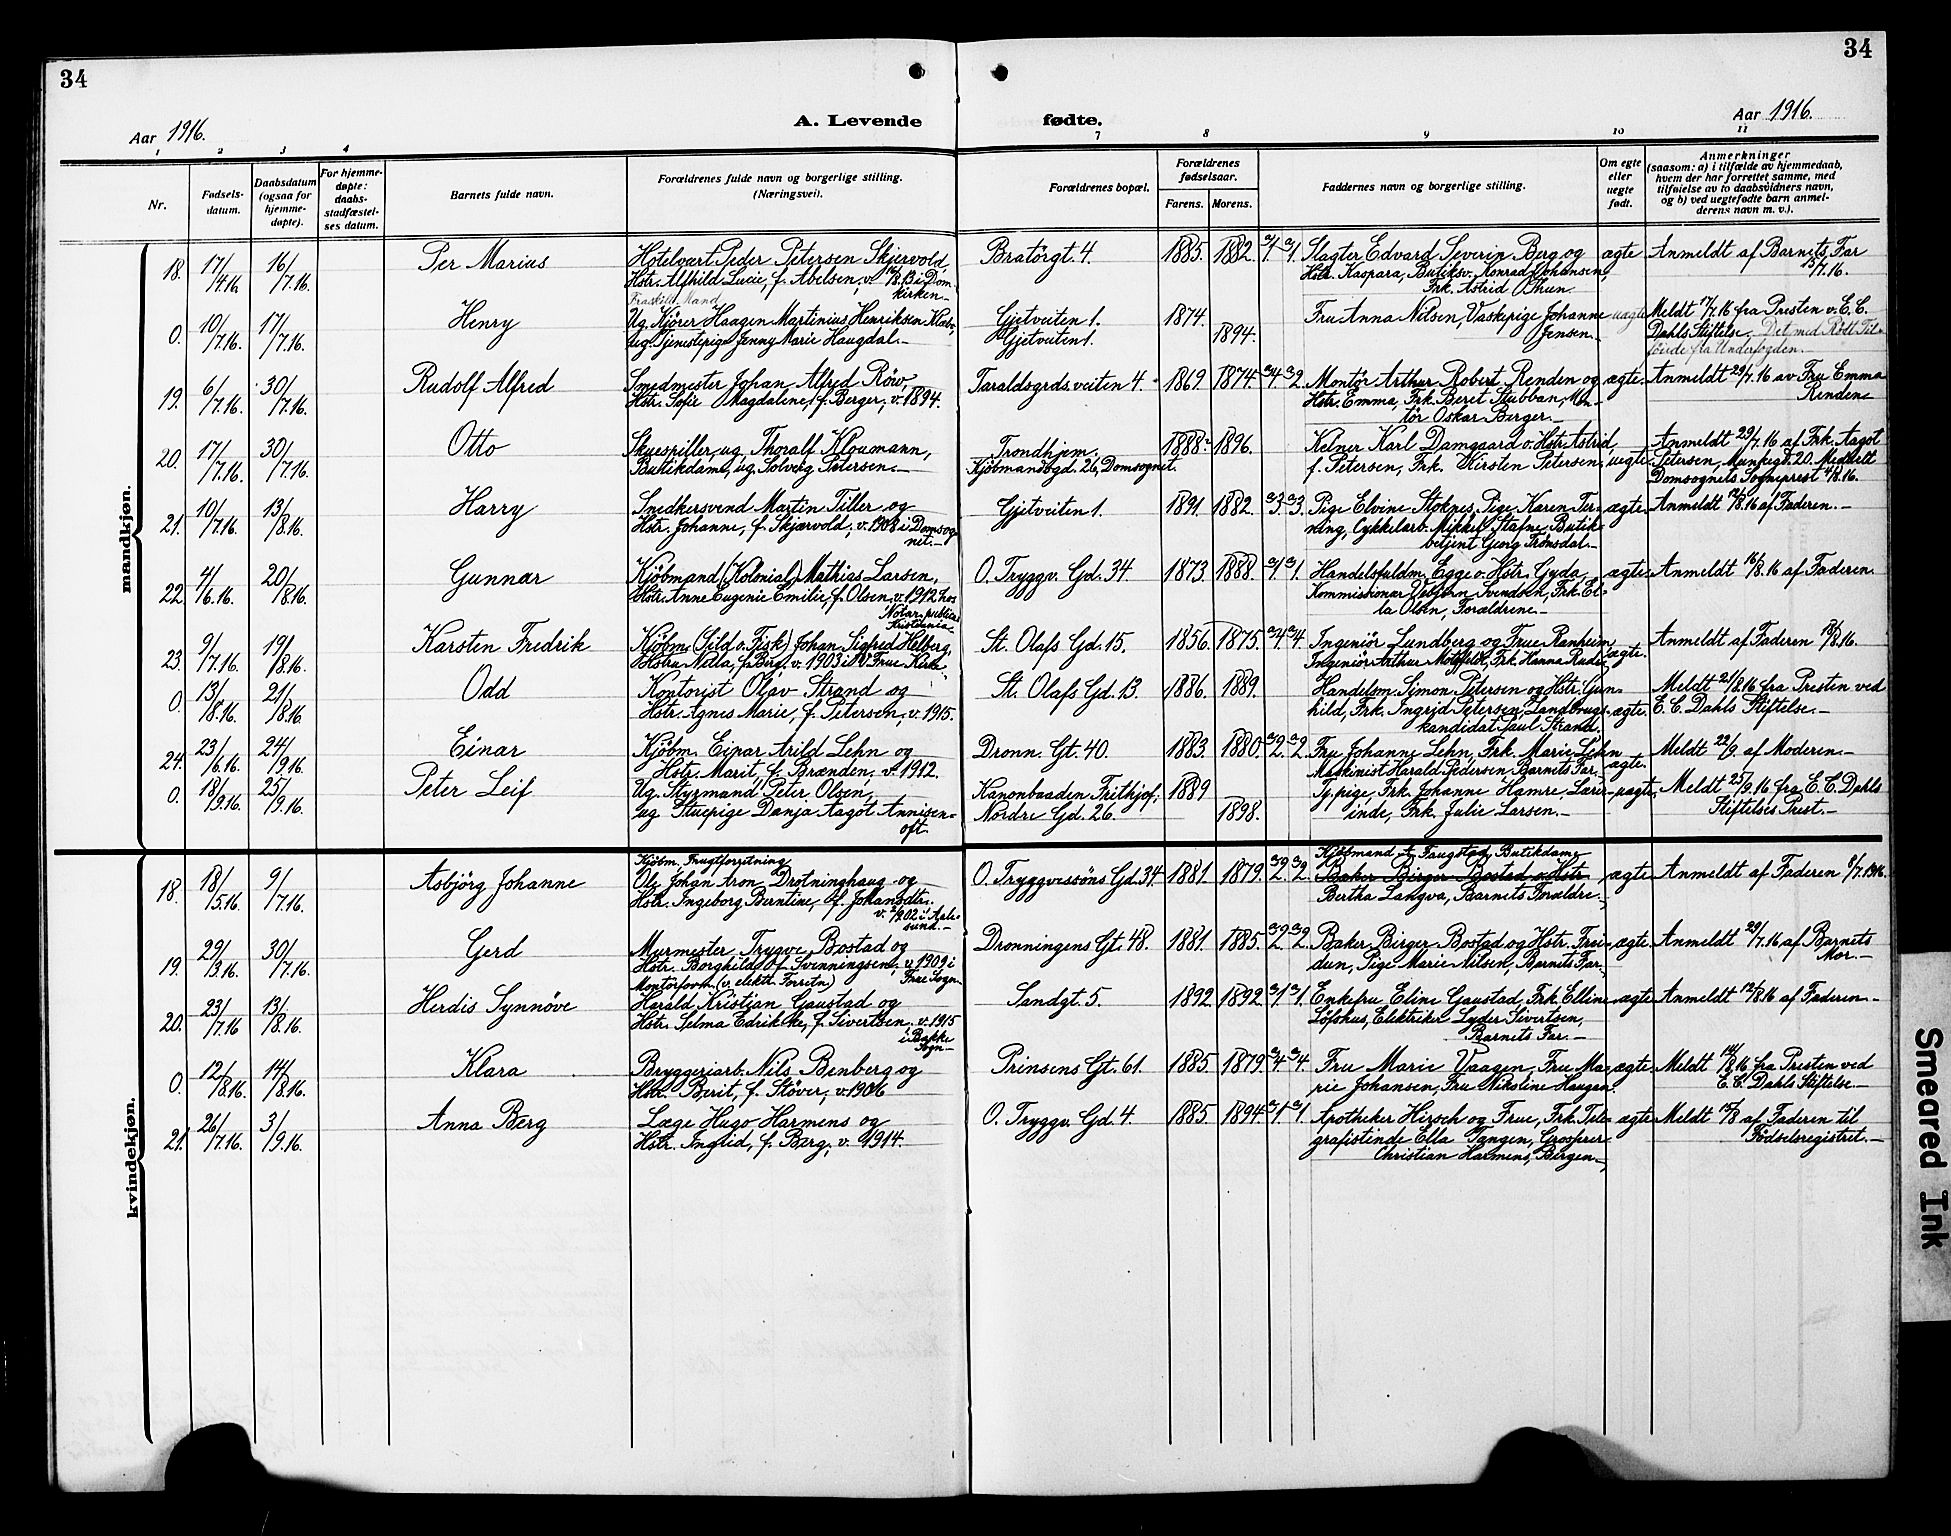 34
34
Aar 1916.
A. Levende
fødte.
Aar 1916.
1
2
3
4
7
8
9
10
11
Nr.
Fødsels-
datum.
Daabsdatum
(ogsaa for
hjemme-
døpte).
For hjemme-
døpte:
daabs-
stadfæstel-
ses datum.
Barnets fulde navn.
Forældrenes fulde navn og borgerlige stilling.
(Næringsvei).
Forældrenes bopæl.
Forældrenes
fødselsaar.
Farens.
Morens.
Faddernes navn og borgerlige stilling.
Om egte
eller
uegte
født.
Anmerkninger
(saasom: a) i tilfælde av hjemmedaab,
hvem der har forrettet samme, med
tilføielse av to daabsvidners navn,
og b) ved uegtefødte barn anmel-
derens navn m. v.).
mandkjøn.
18. 17/4.16. 16/7.16. Per Marius Hotelvært Peder Petersen Skjervold, Bratörgt. 4. 1885. 1882. Slagter Edvard Severin Berg og ægte Anmeldt af Barnets Far
Hstr. Alfhild Lucie, f. Abelsen, v. i Dom- Hstr. Kaspara, Butiksv. Konrad Johansen, 15/7.16.
kirken Frk. Astrid Thun.
Fraskild Mand
0. 10/7.16. 17/7.16. Henry Ug. Kjörer Haagen Martinius Henriksen Gjetveiten 1. 1874. Fru Anna Nilsen, Vaskepige Johanne uægte Meldt 17/7.16 fra Presten v. E. C.
Ug. Tjenestepige Jenny Marie Haugdal Gjetveiten 1. 1894. Jensen Dahls Stiftelse. Det med Rödt Til-
föiede fra Underfogden.
19. 6/7.16. 30/7.16. Rudolf Alfred Smedmester Johan Alfred Röw, Taraldsgrdsveiten 4. 1869 1874. Montör Arthur Robert Renden og ægte Anmeldt 29/7.16 av Fru Emma
Hstr. Sofie Magdaline, f. Berger, v. 1894. Hstr. Emma, Frk. Beret Stubban, Mon- Renden
tör Oskar Berger.
20. 17/7.16. 30/7.16. Otto Skuespiller, ug. Thoralf Klouman, Trondhjem. 1888 1896. Kelner Karl Damgaard o. Hstr. Astrid Anmeldt 29/7.16 af Frk. Aagot
Butikdame, ug. Solveig Petersen Kjöbmandsgd. 26, Domsognet. f. Petersen, Frk. Kirsten Petersen. uægte Petersen, Munkegt. 20. Meddelt
Domsognets Sogneprest 4/8.16.
21. 10/7.16. 13/8.16. Harry Snedkersvend Martin Tiller og Gjetveiten 1. 1891. 1882. Pige Elvine Stoknes, Pige Karen Ter- ægte Anmeldt 12/8.16 af Faderen.
Hstr. Johanne, f. Skjærvold, v. 1908 i Domsog- ning, Cykkelarb. Mikkel Stafne, Butik-
net. betjent Georg Trönsdal
22. 4/6.16. 20/8.16. Gunnar Kjöbmand (Kolonial) Mathias Larsen, O. Tryggv. Gd. 34. 1873. 1888. Handelsfuldm. Egge o. Hstr. Gyda, ægte Anmeldt 16/8.16 af Faderen.
Hstr. Anne Eugenie Emilie, f. Olsen, v. 1912 hos Kommissionær Vebjörn Svendsen, Frk. El-
Notar. publicus la Olsen, Forældrene
Kristiania
23. 9/7.16. 19/8.16. Karsten Fredrik Kjöbm. (Sild o. Fisk) Johan Sigfred Helberg, St. Olafs Gd. 15. 1856. 1875. Ingeniör Lundberg og Frue Ranheim, Anmeldt af Faderen
Hstru Netla, f. Berg, v. 1903 i V Frue Kirke Ingeniör Arthur Motzfeldt, Frk. Hanna Rude. ægte.
0. 13/8.16. 21/8.16 Odd Kontorist Olav Strand og St. Olafs Gd. 13. 1886. 1889. Handelsm. Simon Petersen og Hstr. Gun- Meldt 21/8.16 fra Presten ved
Hstr. Agnes Marie, f. Petersen, v. 1915. hild, Frk. Ingrid Petersen, Landbrugs- ægte. E. C. Dahls Stiftelse.
kandidat Paul Strand.
24. 23/6.16. 24/9.16. Einar Kjöbm. Einar Arild Lehn og Dronn. Gt. 40. 1883. 1880. Fru Johanne Lehn, Frk. Marie Lehn Meldt 22/9 af Moderen
Hstr. Marit, f. Brænden, v. 1912. Maskinist Harald Pedersen, Barnets Far, ægte.
0. 18/9.16. 25/9.16. Peter Leif Ug. Styrmand Peter Olsen, Kanonbaaden Frithjof, 1889 Sypige Frk. Johanne Hamre, Lærer- uægte Meldt 25/9.16 fra E. C. Dahls
ug. Stuepige Danja Aagot Annisen- Nordre Gd. 26. 1898. inde, Frk. Julie Larsen. Stiftelses Prest.
oft.
kvindekjøn.
18. 18/5.16. 9/7.16. Asbjörg Johanne Kjöbm. Frugtforretning Kjöbmand A. Faugstad, Butikdame
Ole Johan Aron Drotninghaug og O. Tryggvessöns Gd. 34 1881. 1879. Baker Birger Bostad o. Hstr ægte Anmeldt af Faderen 8/7.1916.
Hstr. Ingeborg Berntine, f. Johansdtr. Bertha Langva, Barnets Forældre.
v. 1902 i Aale-
sund.
19. 29/3.16. 30/7.16. Gerd Murmester Trygve Bostad og Dronningens Gt. 48. 1881. 1885. Baker Birger Bostad og Hstr. Frei- ægte Anmeldt 29/7.16 af Barnets
Hstr. Borghild, f. Svinningsen, v. 1909 i dun, Pige Marie Nilsen, Barnets Far. Mor.
Frue Sogn
20. 23/7.16 13/8.16. Herdis Synnöve Montörform. (v. elektr. Forretn)
Harald Kristian Gaustad og Sandgt. 5. 1892 1892. Enkefru Eline Gaustad, Frk. Elline ægte Anmeldt 12/8.16 af Faderen.
Hstr. Selma Edrikke, f. Sivertsen, v. 1915 Löfshus, Elektriker Lyder Sivertsen,
i Bakke Barnets Far.
Sogn
0. 12/8.16. 14/8.16. Klara Bryggeriarb. Nils Benberg og Prinsens Gt. 61. 1885 1879. Fru Marie Vaagen, Fru Ma- ægte Meldt 14/8.16 fra Presten ved
Hstr. Berit, f. Stöver, v. 1906 rie Johansen, Fru Nikoline Haugan. E. C. Dahls Stiftelse
21. 26/7.16. 3/9.16. Anna Berg Læge Hugo Harmens og O. Tryggv. Gd. 4. 1885. 1894. Apotheker Hirsch og Frue, Frk. Tele- ægte Meldt 15/8 af Faderen til
Hstr. Ingrid, f. Berg, v. 1914. grafistinde Ella Tangen, Grosserer Födselsregistret.
Christian Harmens, Bergen
Smeared Ink